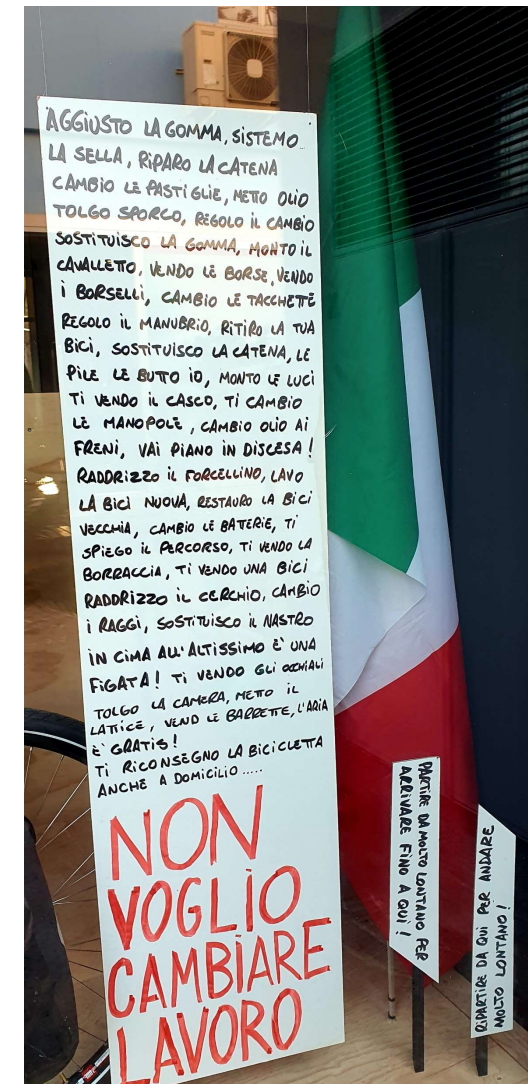 AGGIUSTO LA GOMMA, SISTEMO
LA SELLA, RIPARO LA CATENA
CAMBIO LE PASTIGLIE, METTO OLIO
TOLGO SPORCO, REGOLO IL CAMBIO
SOSTITUISCO LA GOMMA, MONTO IL
CAVALLETTO, VENDO LE BORSE, VENDO
I BORSELLI, CAMBIO LE TACCHETTE
REGOLO IL MANUBRIO, RITIRO LA TUA
BICI, SOSTITUISCO LA CATENA, LE
PILE LE BUTTO IO, MONTO LE LUCI
TI VENDO IL CASCO, TI CAMBIO
LE MANOPOLE, CAMBIO OLIO AI
FRENI, VAI PIANO IN DISCESA!
RADDRIZZO IL FORCELLINO, LAVO
LA BICI NUOVA, RESTAURO LA BICI
VECCHIA, CAMBIO LE BATERIE, TI
SPIEGO IL PERCORSO, TI VENDO LA
BORRACCIA, TI VENDO UNA BICI
RADDRIZZO IL CERCHIO, CAMBIO
I RAGGI, SOSTITUISCO IL NASTRO
IN CIMA ALL'ALTISSIMO E' UNA
FIGATA! TI VENDO GLI OCCHIALI
TOLGO LA CAMERA, METTO IL
LATTICE, VEND LE BARRETTE, L'ARIA
E' GRATIS!
TI RICONSEGNO LA BICICLETTA
ANCHE A DOMICILIO.....
NON
VOGLIO
CAMBIARE
LAVORO
PARTIRE DA MOLTO LONTANO PER
ARRIVARE FINO A QUI!
RIPARTIRE DA QUI PER ANDARE
MOLTO LONTANO!